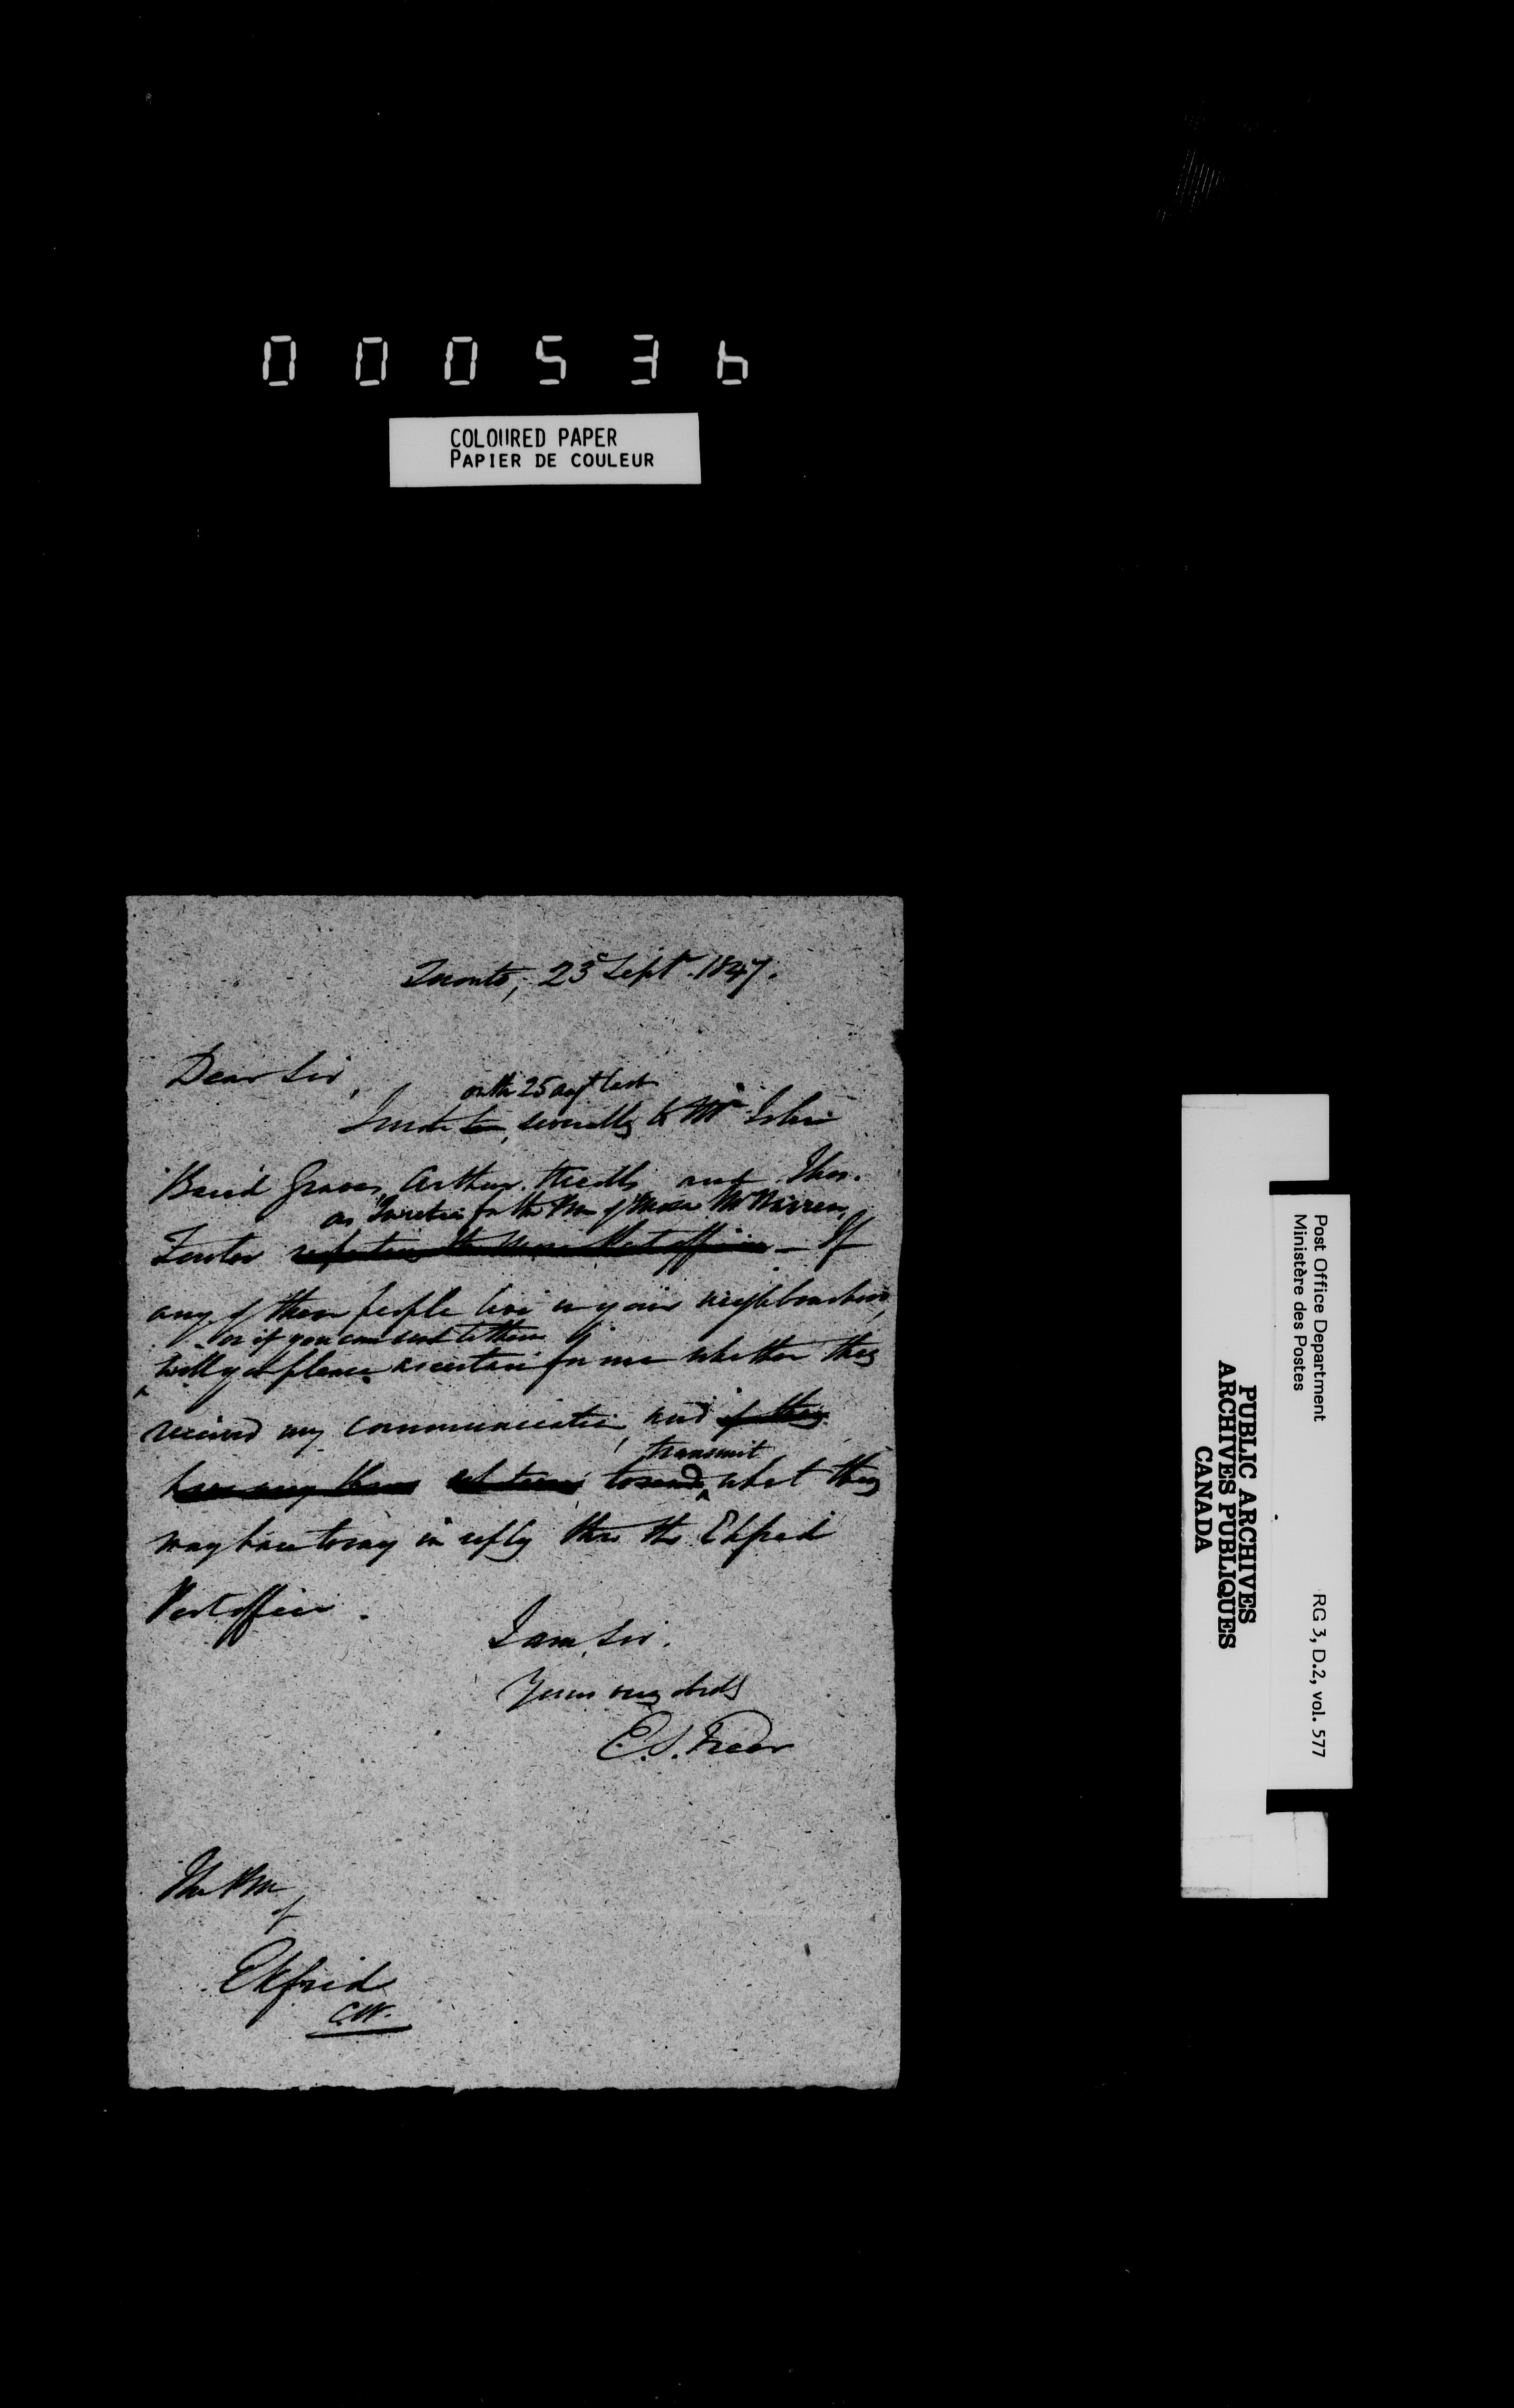 000536
COLOURED PAPER
PAPIER DE COULEUR
Toronto, 23d Septr. 1847.
Dear Sir,
on the 25 augt last
I wrote to, severally to Mr John
Baird Graves, Arthur and Thos.
as Sureties for the PM of Mosa Mr
Post office - If
any of these people live in your neighbourhood,
or if you can send to them
will you please ascertain for me whether they
received my communication, and if they
transmit
have any to send what they
may have to say in reply thro the Ekfrid
Post office.
I am, Sir,
Yours very obedt
E.S. Freer
The PM
of
Ekfrid
C.W.
Post Office Department
Ministère des Postes
RG 3, D.2, vol. 577
PUBLIC ARCHIVES
ARCHIVES PUBLIQUES
CANADA